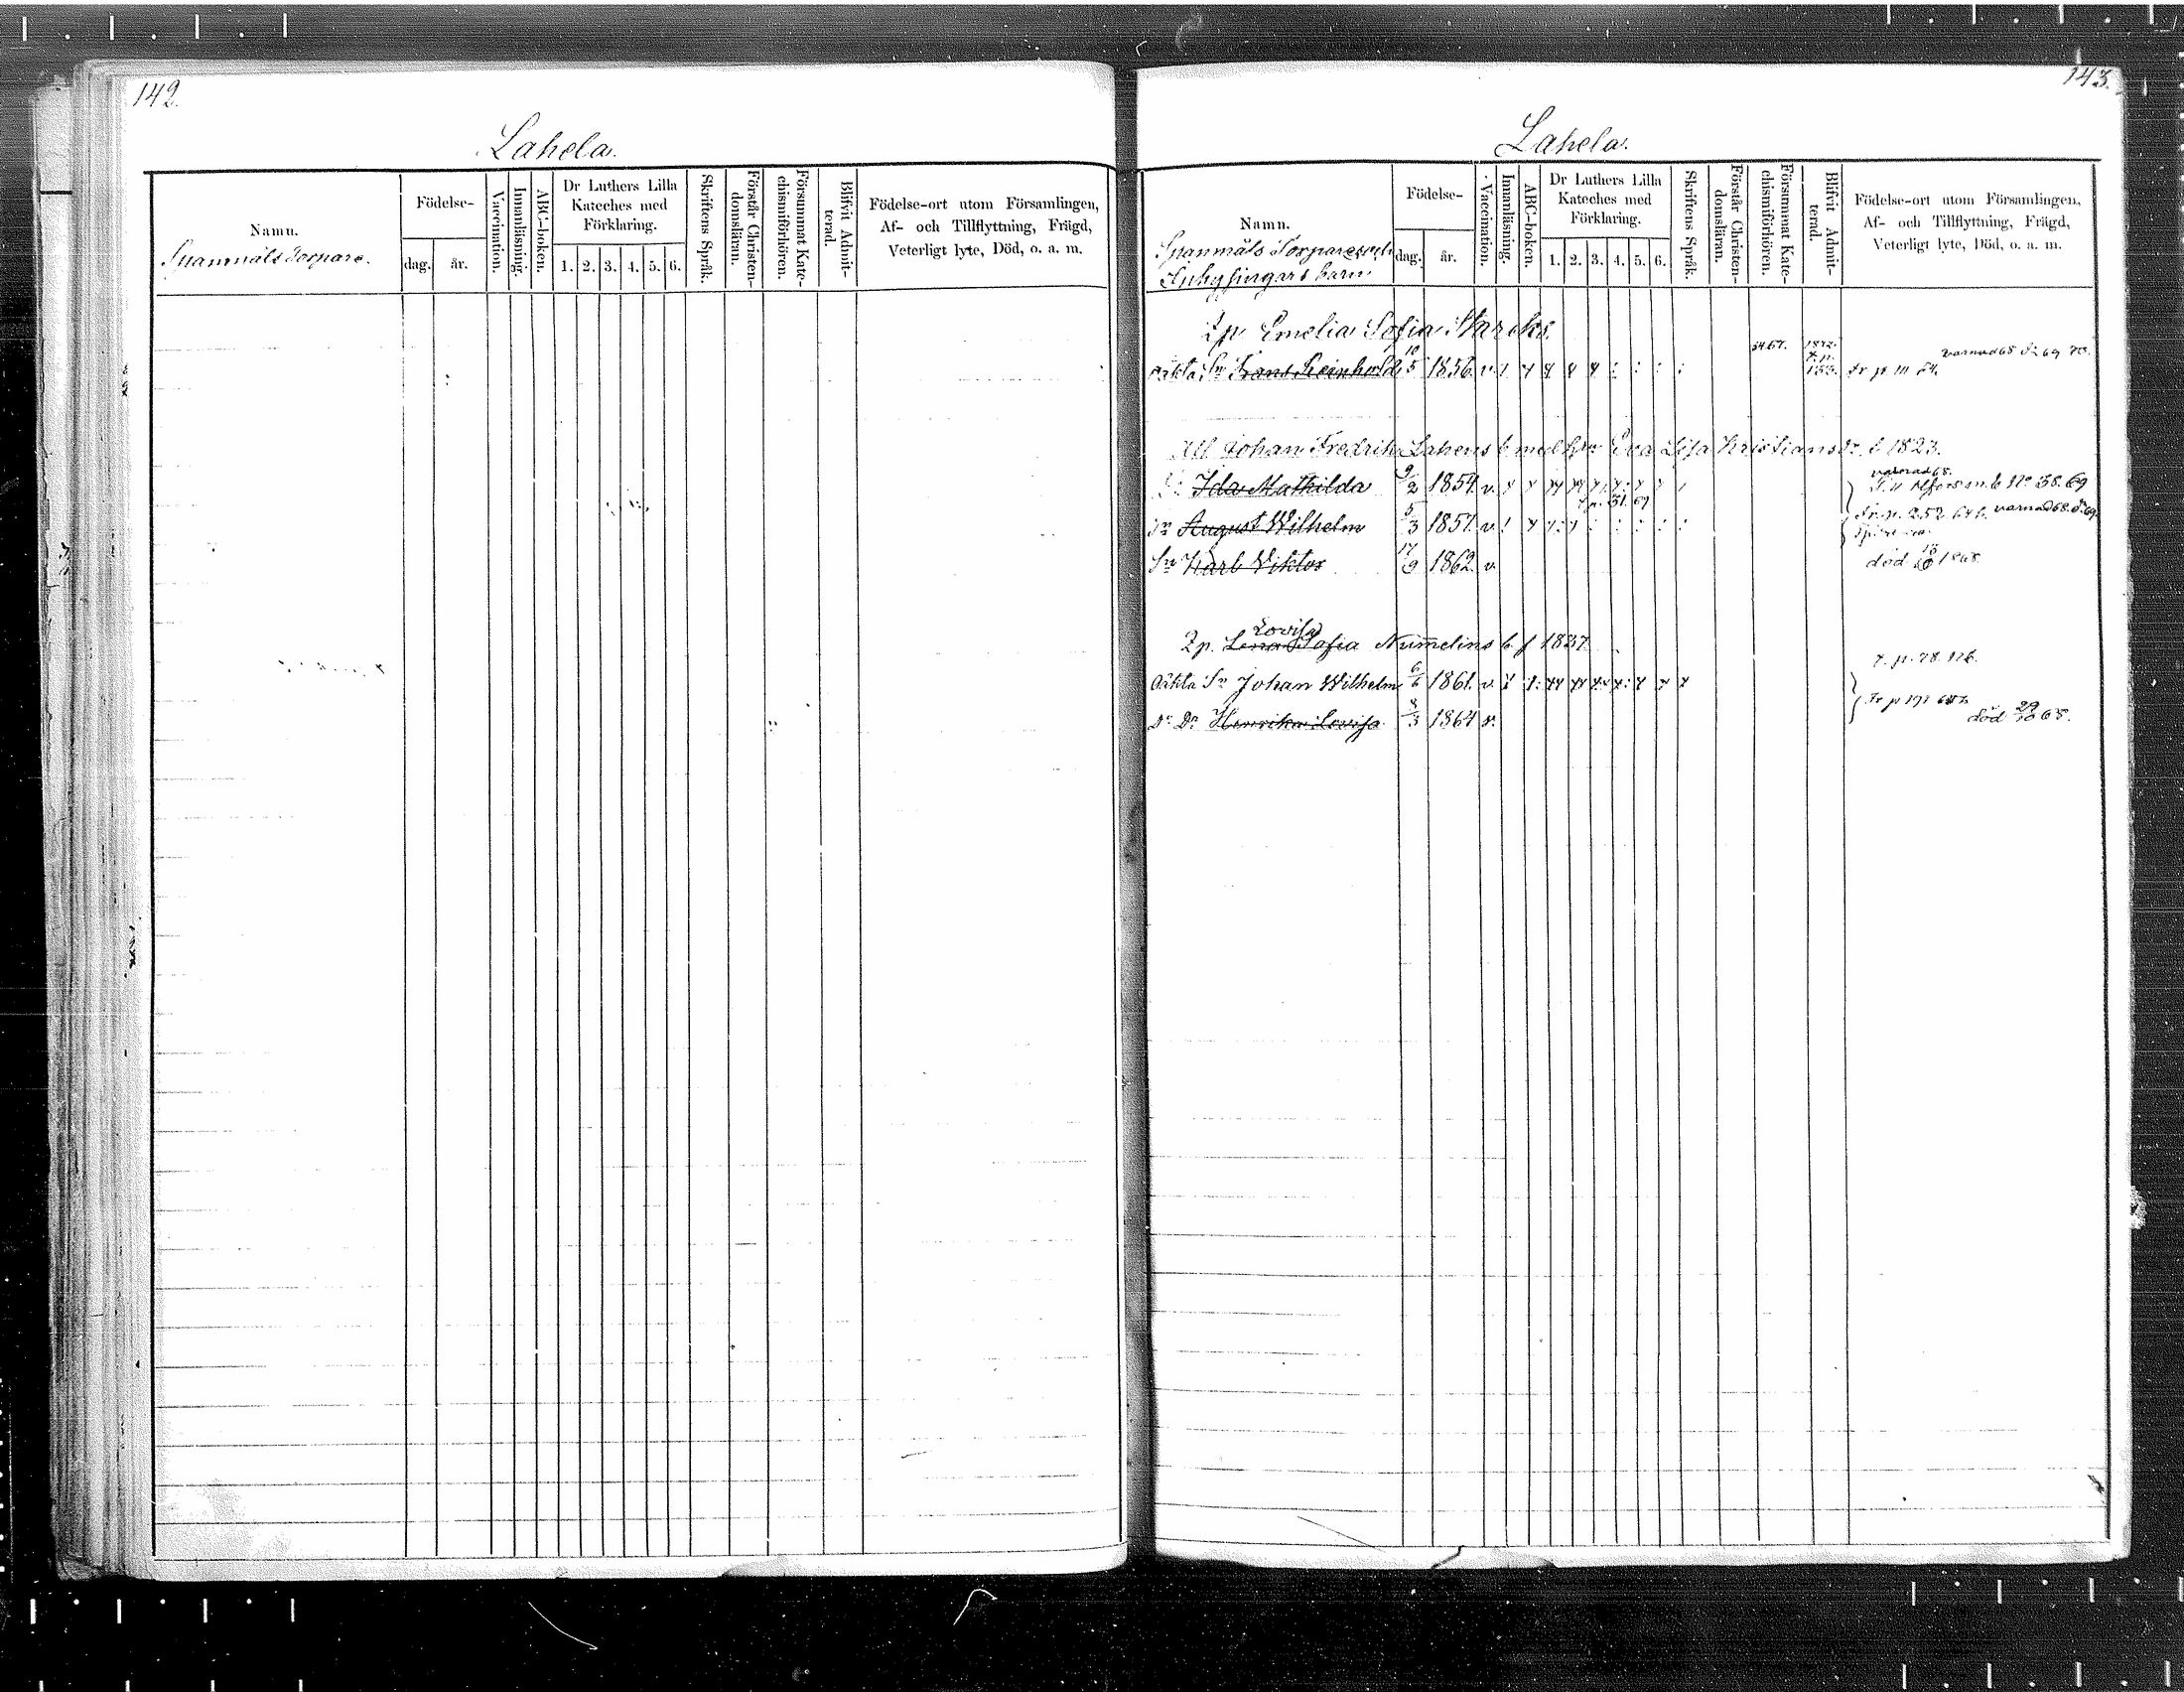 142.
Lahela.
Namn.
Spanmåls Torpare.
Födelse-
dag. år.
Vaccination.
Innanläsning.
ABC-boken.
Dr Luthers Lilla
Kateches med
Förklaring.
1. 2. 3. 4. 5. 6.
Skriftens Språk.
Förstår Christen-
domsläran.
Försummat Kate-
chismiförhören.
Blifvit Admit-
terad.
Födelse-ort utom Församlingen,
Af- och Tillflyttning, Frägd,
Veterligt lyte, Död, o. a. m.
143.
Lahela.
Namn.
Spanmåls Torpares och
Inhysingars barn
Födelse-
dag. år.
Vaccination.
Innanläsning.
ABC-boken.
Dr Luthers Lilla
Kateches med
Förklaring.
1. 2. 3. 4. 5. 6.
Skriftens Språk.
Förstår Christen-
domsläran.
Försummat Kate-
chismiförhören.
Blifvit Admit-
terad.
Födelse-ort utom Församlingen,
Af- och Tillflyttning, Frägd,
Veterligt lyte, Död, o. a. m.
Emelia Sofia Starcks.
oäkta Sn Frans Reinhold 10/5 1856. v. 64.67. 1872. varnad 68 69 70.
Johan Fredrik Lahens b med hu Eva Lisa Kristiansdr. f 1823.
varnad 68.
Dr Ida Mathilda 9/2 1854 v. No 58. 69
Sn August Wilhelm 5/3 1857. v. Fr. p. 252 varnad 68. 69.
Sn Karl Viktor 17/9 1862. v. död 1868
Lovisa
Lena Sofia Numelins b f 1837.
t. p. 78. 126.
oäkta Sn Johan Wilhelm 6/6 1861. v.
Dr Henrika Lovisa 8/3 1864 v. död 29/10 68.